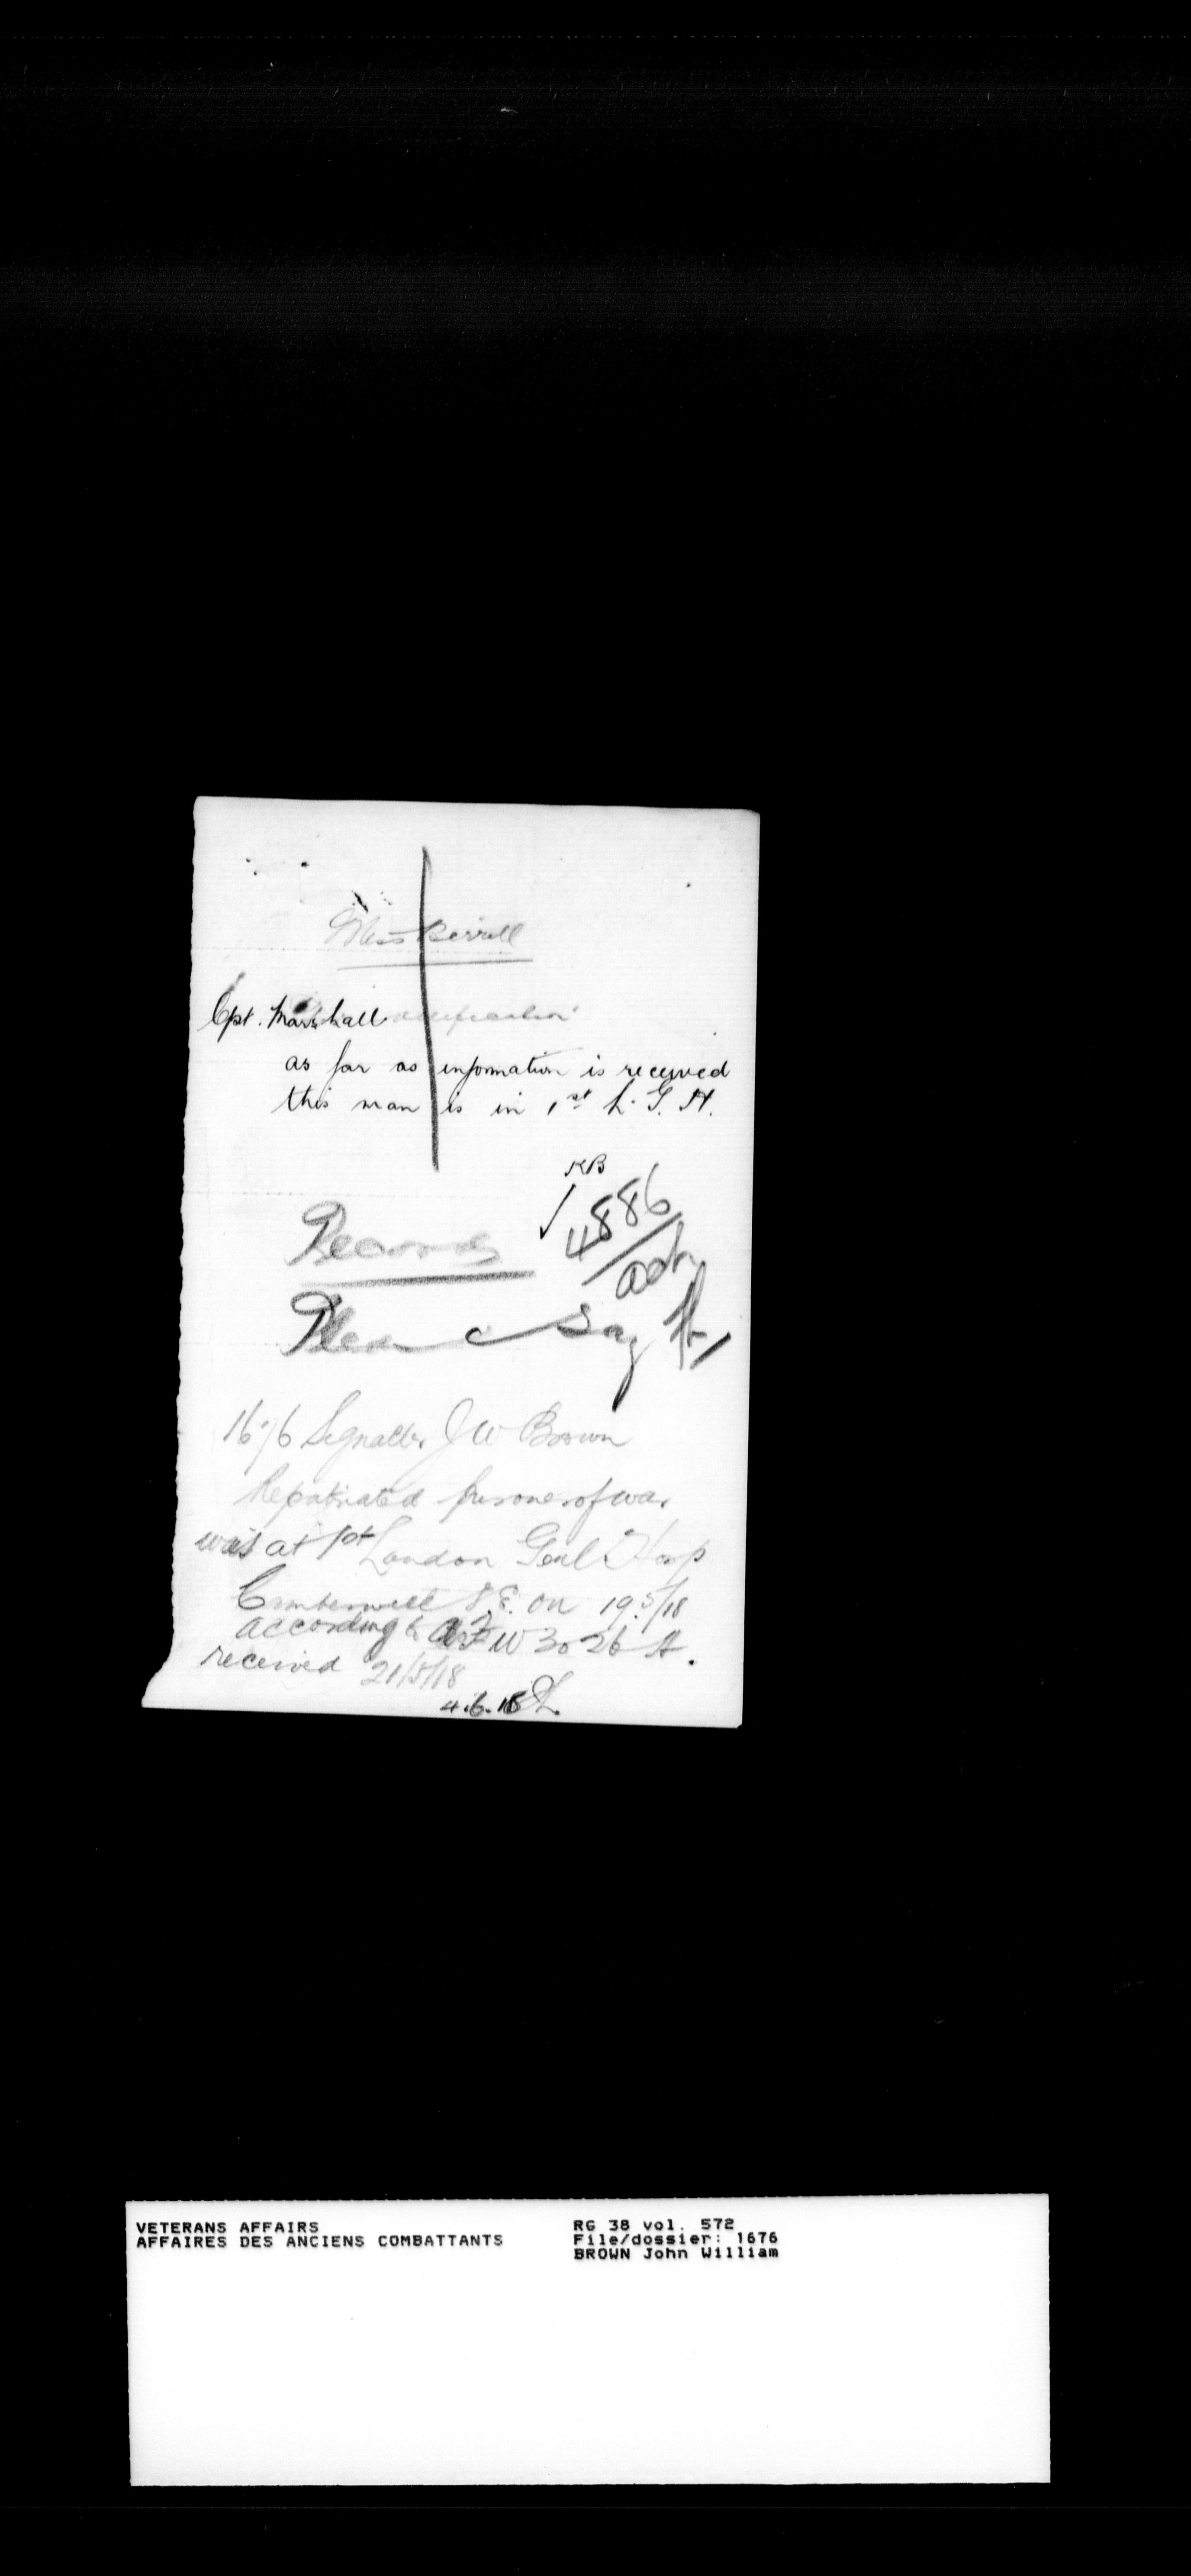 Miss Berrell
Cpt. Marshall
as far as information is received
this man is in 1st L. G. H.
KB
4886
adn
Records
Please say
1676 Signaller J W Brown
Repatriated prisoner of war
was at 1st London Genl Hosp
Camberwell S E. on 19.5/18
according to A F W 3026 A.
received 21/5/18
4.6.18
VETERANS AFFAIRS
AFFAIRES DES ANCIENS COMBATTANTS
RG 38 vol. 572
File/dossier: 1676
BROWN John William